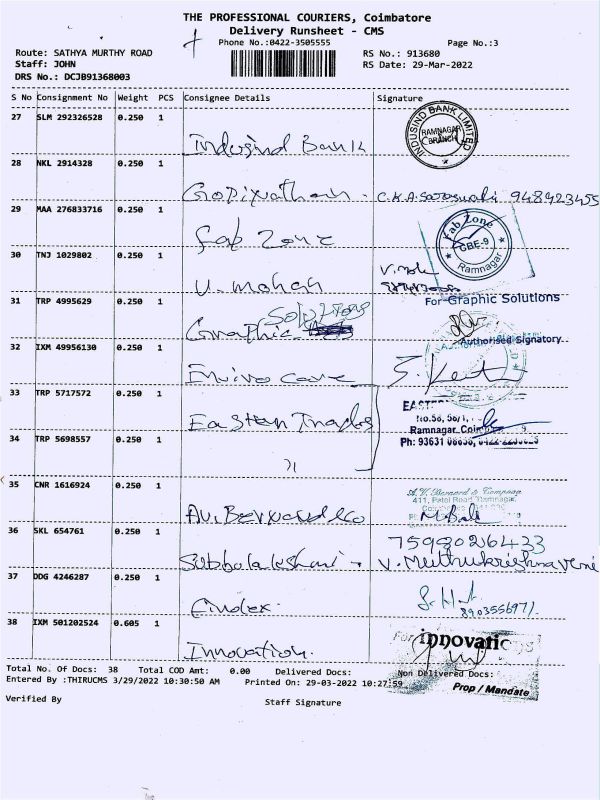 THE PROFESSIONAL COURIERS, Coimbatore
Delivery Runsheet - CMS
Phone No.:0422-3505555 Page No.:3
Route: SATHYA MURTHY ROAD RS No.: 913680
Staff: JOHN RS Date: 29-Mar-2022
DRS No.: DCJB91368003
S No Consignment No Weight PCS Consignee Details Signature
27 SLM 292326528 0.250 1
Indusind Bank INDUSIND BANK LIMITED RAMNAGAR BRANCH
28 NKL 2914328 0.250 1
Gopinathan - C.K.A.
29 MAA 276833716 0.250 1
Fab Zone Fab Zone CBE-9 Ramnagar
30 TNJ 1029802 0.250 1
U. mohan
31 TRP 4995629 0.250 1 For Graphic Solutions
Graphic Solutions
32 IXM 49956130 0.250 1 Authorised Signatory
33 TRP 5717572 0.250 1
Eastern
Ramnagar,
34 TRP 5698557 0.250 1 Ph: 93631
35 CNR 1616924 0.250 1 A.V. Bernard & Company
411, Patel Road, Ramnagar,
AV. Bernard & co M. Bali
36 SKL 654761 0.250 1 7599026433
V. Muthukrishnaveni
37 DDG 4246287 0.250 1
Findex.
38 IXM 501202524 0.605 1 For innovations
Innovation.
Total No. Of Docs: 38 Total COD Amt: 0.00 Delivered Docs: Non Delivered Docs:
Entered By :THIRUCMS 3/29/2022 10:30:50 AM Printed On: 29-03-2022 10:27:59 Prop / Mandate
Verified By Staff Signature